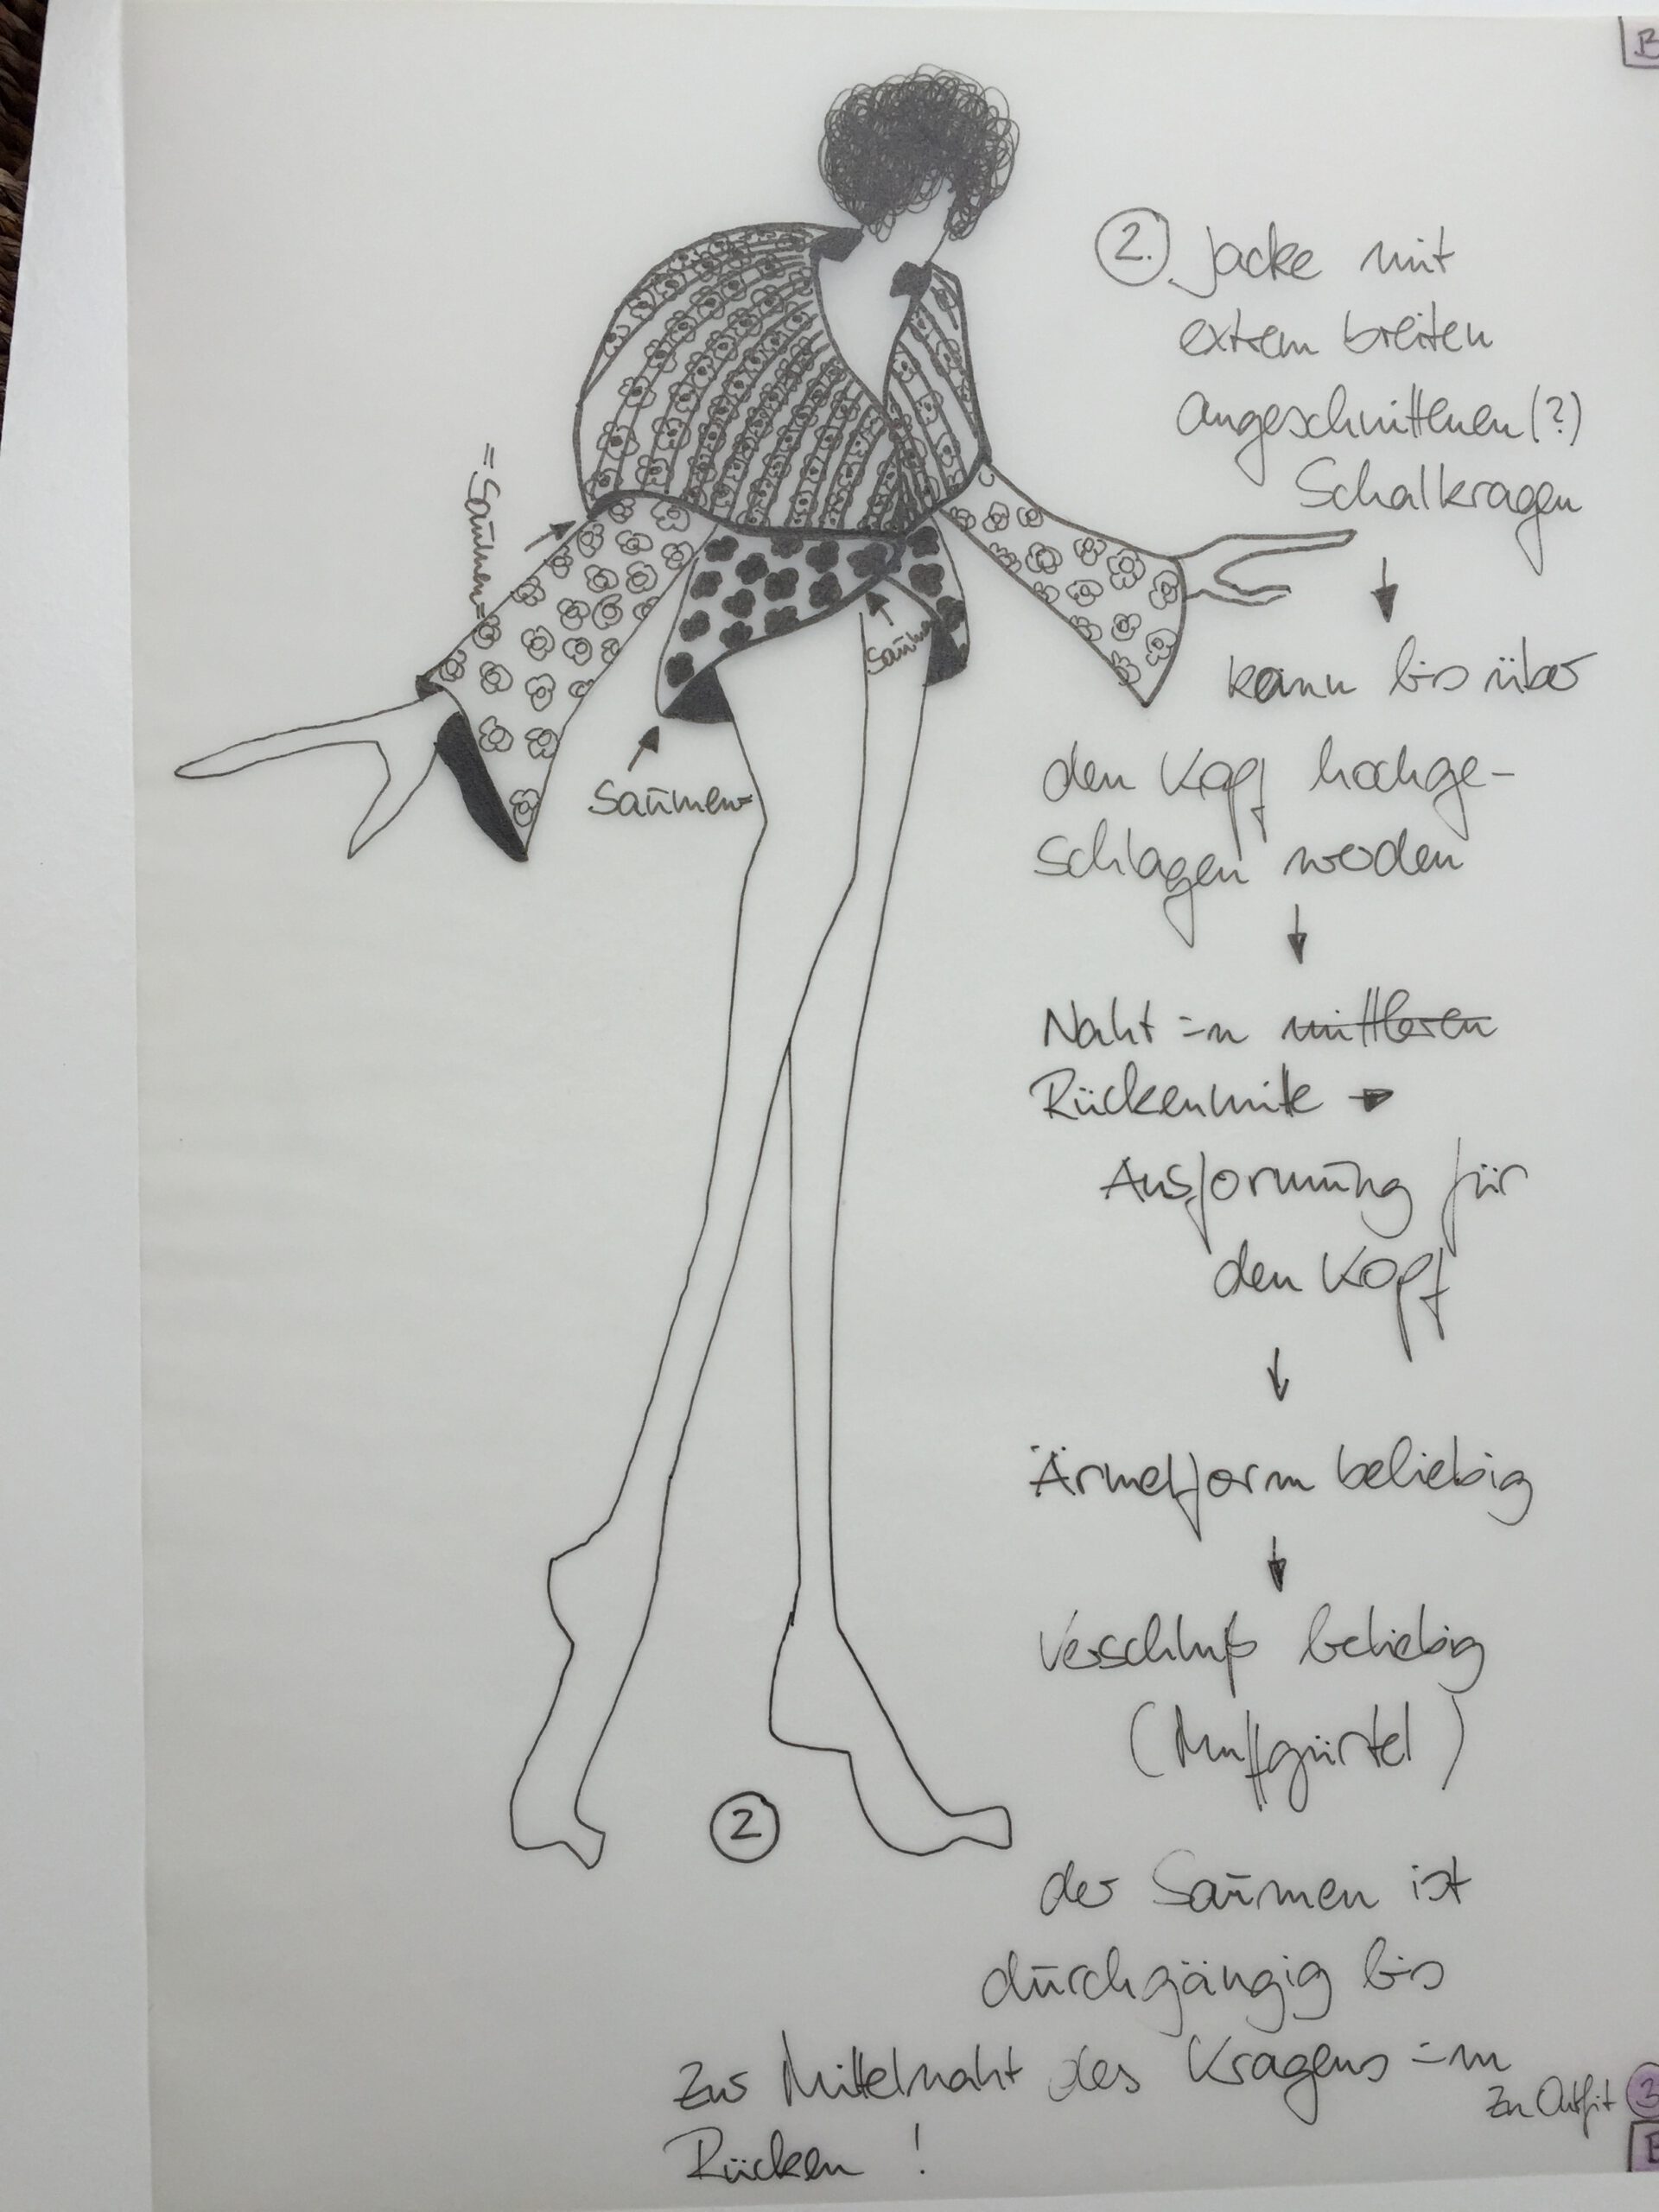 B
2. Jacke mit
extrem breiten
angeschnittenen (?)
Schalkragen
kann bis über
den Kopf hochge-
schlagen werden
Naht in mittleren
Rückenmitte
Ausformung für
den Kopf
Ärmelform beliebig
Verschluß beliebig
(Muffgürtel)
der Saumen ist
durchgängig bis
zur Mittelnaht des Kragens im
Rücken !
=Saumen=
Saumen
Saumen=
2
Zu Outfit 3